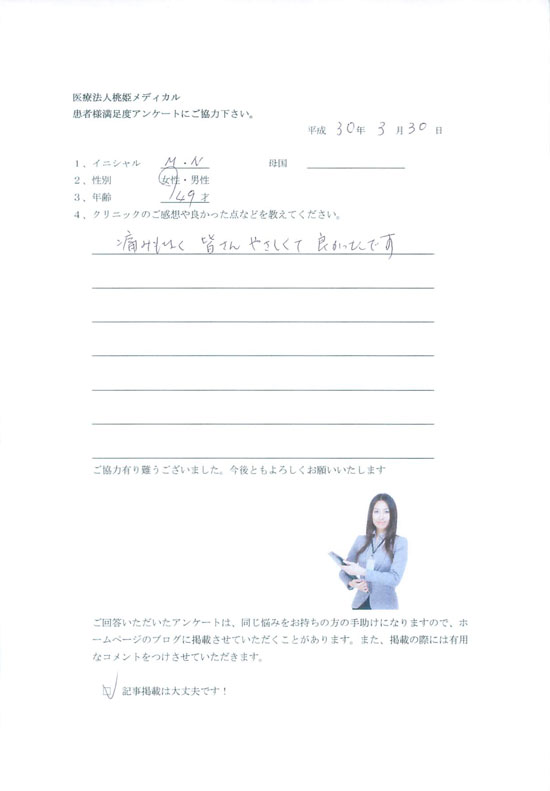 医療法人桃姫メディカル
患者様満足度アンケートにご協力下さい。
平成 30年 3月30日
1、イニシャル M・N 母国
2、性別 女性・男性
3、年齢 49才
4、クリニックのご感想や良かった点などを教えてください。
痛みもなく 皆さん やさしくて 良かったんです
ご協力有り難うございました。今後ともよろしくお願いいたします
ご回答いただいたアンケートは、同じ悩みをお持ちの方の手助けになりますので、ホ
ームページのブログに掲載させていただくことがあります。また、掲載の際には有用
なコメントをつけさせていただきます。
記事掲載は大丈夫です！